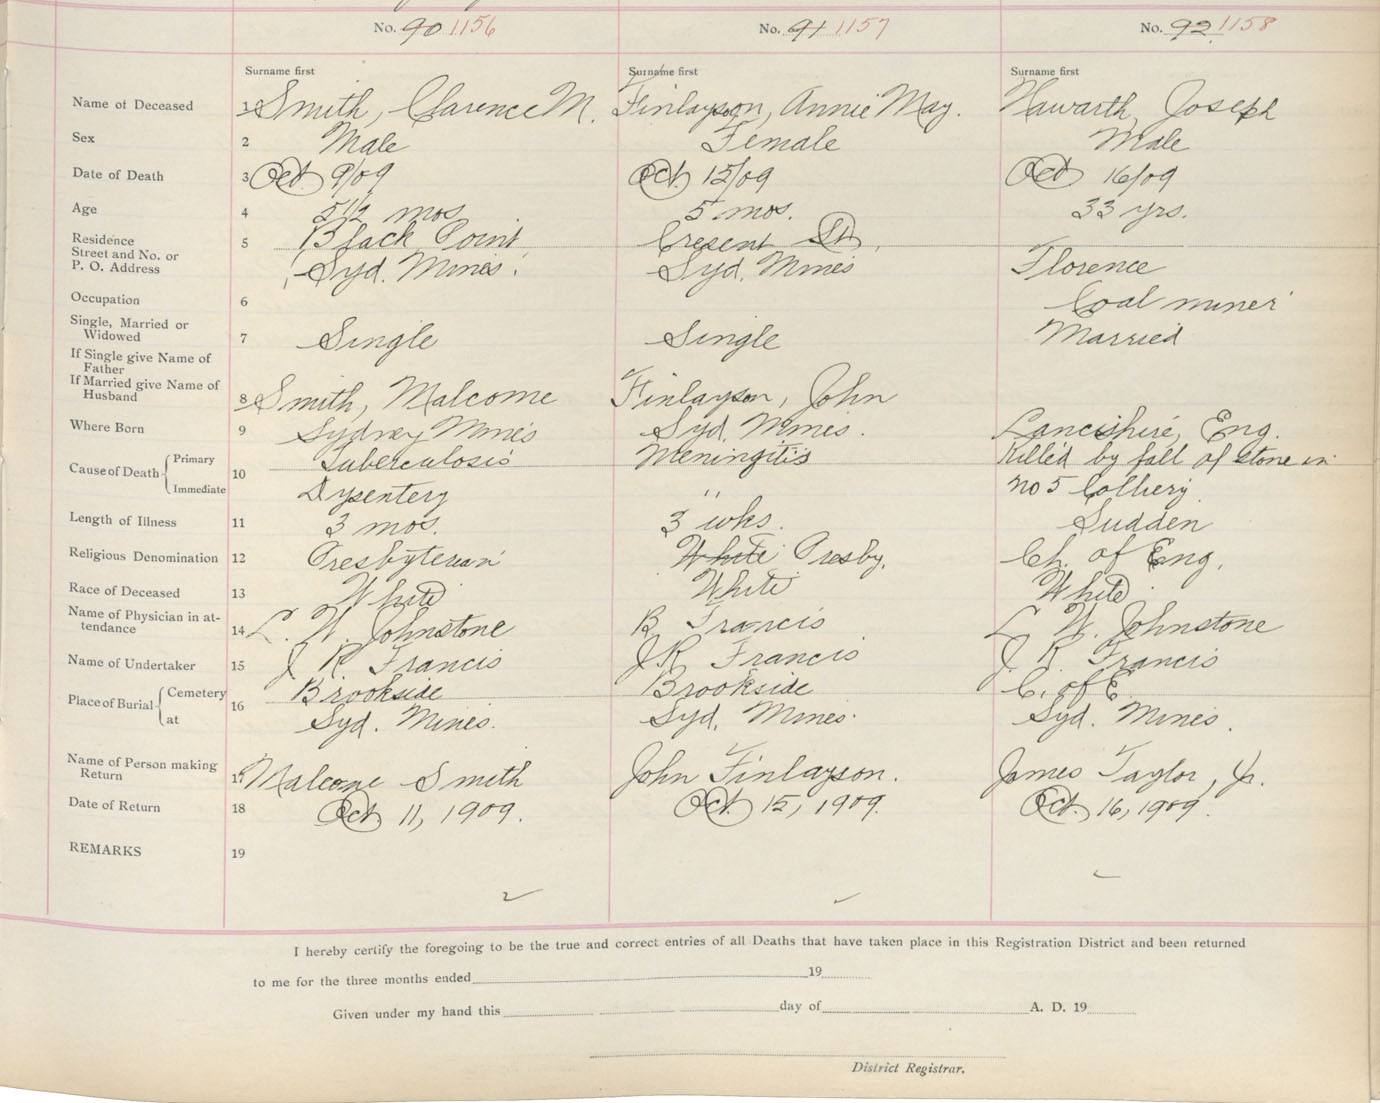 No. 90 1156 No. 91 1157 No. 92 1158
Surname first Surname first Surname first
Name of Deceased 1 Smith, Clarence M. Finlayson, Annie May. Hawarth, Joseph
Sex 2 Male Female Male
Date of Death 3 Oct. 9/09 Oct. 15/09 Oct 16/09
Age 4 5 1/2 mos 5 mos. 33 yrs.
Residence 5 Black Point Cresent St.
Street and No. or
P. O. Address Syd. Mines. Syd. Mines Florence
Occupation 6 Coal miner
Single, Married or
Widowed 7 Single Single Married
If Single give Name of
Father
If Married give Name of
Husband 8 Smith, Malcome Finlayson, John
Where Born 9 Sydney Mines Syd. Mines. Lancishire, Eng.
Cause of Death Primary 10 Tuberculosis Meningitis Killed by fall of stone in
Immediate Dysentery " no 5 Colliery
Length of Illness 11 3 mos. 3 wks. Sudden
Religious Denomination 12 Presbyterian White Presby. Ch. of Eng.
Race of Deceased 13 White White White
Name of Physician in at-
tendance 14 L. W. Johnstone B Francis L W. Johnstone
Name of Undertaker 15 J R Francis J R Francis J. R. Francis
Place of Burial Cemetery 16 Brookside Brookside C. of E
at Syd. Mines. Syd. Mines. Syd. Mines.
Name of Person making
Return 17 Malcome Smith John Finlayson. James Taylor, Jr.
Date of Return 18 Oct 11, 1909. Oct. 15, 1909. Oct. 16, 1909.
REMARKS 19
I hereby certify the foregoing to be the true and correct entries of all Deaths that have taken place in this Registration District and been returned
to me for the three months ended 19
Given under my hand this day of A. D. 19
District Registrar.